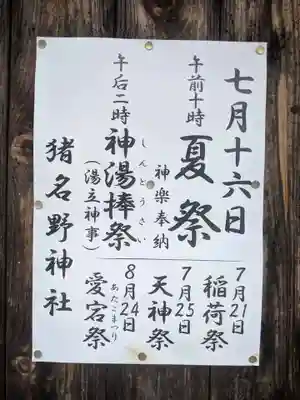 七月十六日
午前十時 夏祭
神楽奉納
午后二時 神湯捧祭
しんとうさい
(湯立神事)
7月21日 稲荷祭
7月25日 天神祭
8月24日 愛宕祭
あたごまつり
猪名野神社